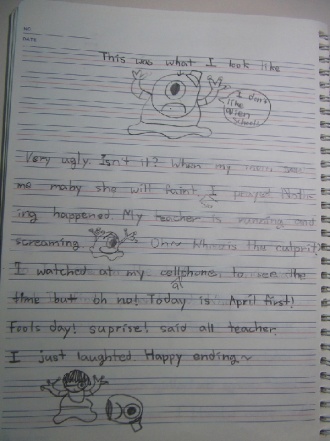 This was what I look like
I don't
like
alien
school!
Very ugly. Isn't it? When my mom see
me maby she will faint. I prayed Noth
So
ing happened. My teacher is running and
screaming. Oh~ Where is the culprit?
I watched at my cellphone, to see the
at
time but oh no! Today is April first!
fools day! suprise! said all teacher.
I just laughted. Happy ending~